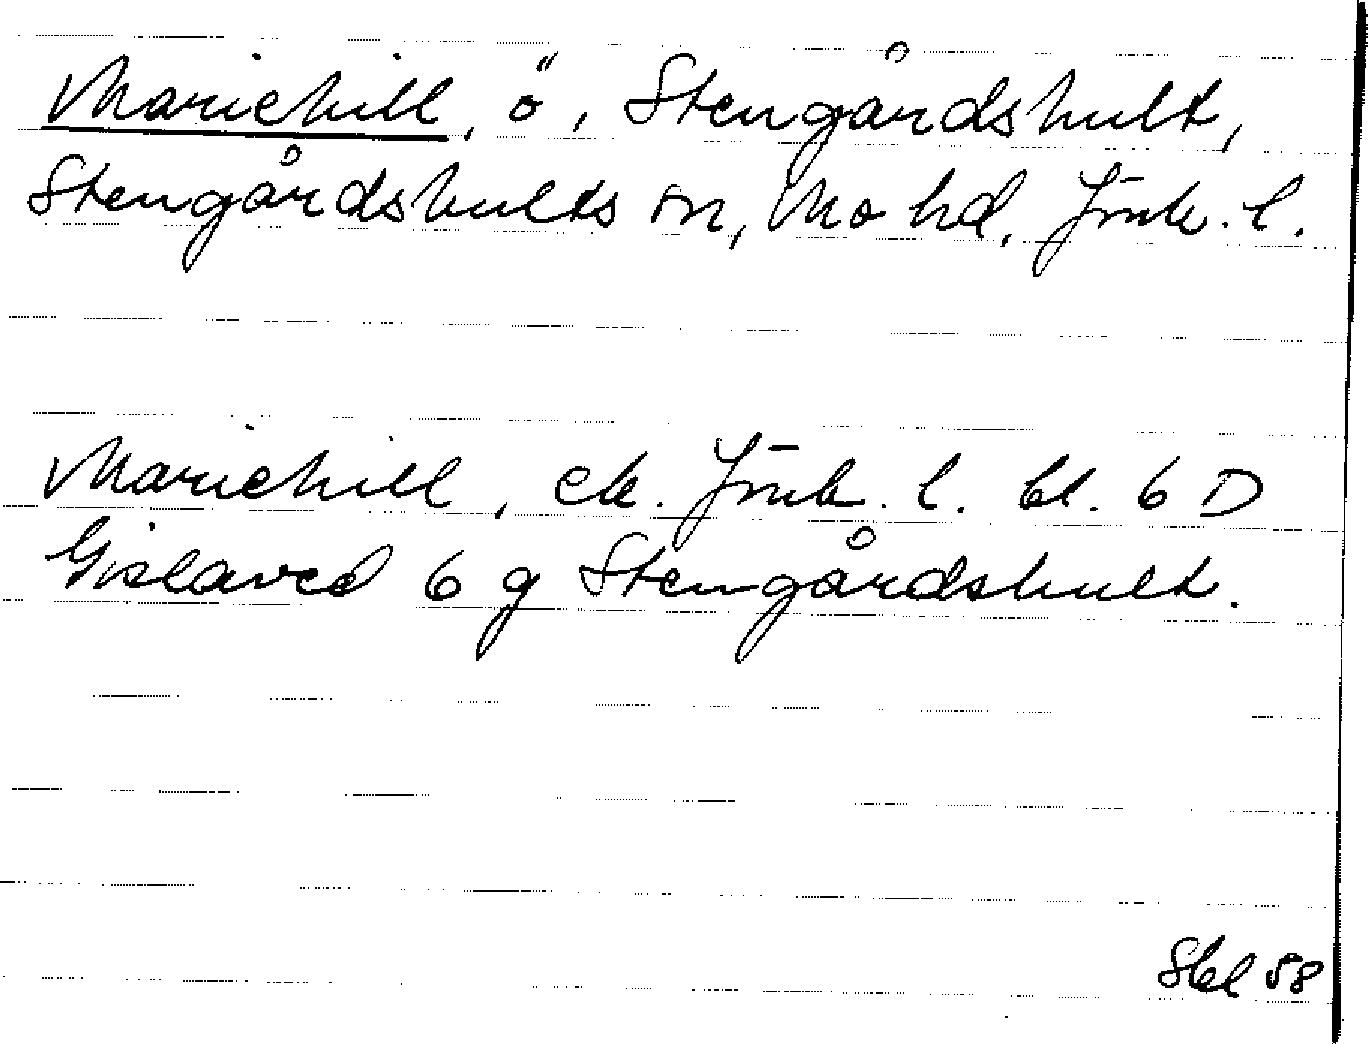 Mariehill, ö, Stengårdshult,
Stengårdshults sn, Mo hd, Jönk. l.
Mariehill, ek. Jönk. l. bl. 6 D
Gislaved 6 g Stengårdshult.
58